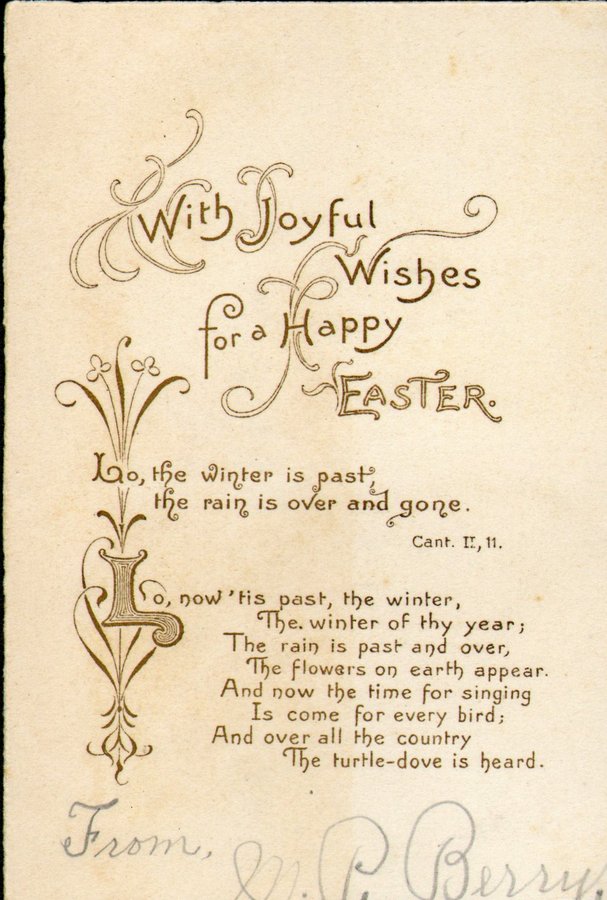 With Joyful
Wishes
for a Happy
EASTER.
Lo, the winter is past,
the rain is over and gone.
Cant. II, 11.
Lo, now 'tis past, the winter,
The. winter of thy year;
The rain is past and over,
The flowers on earth appear.
And now the time for singing
Is come for every bird;
And over all the country
The turtle-dove is heard.
From,
P. Berry.